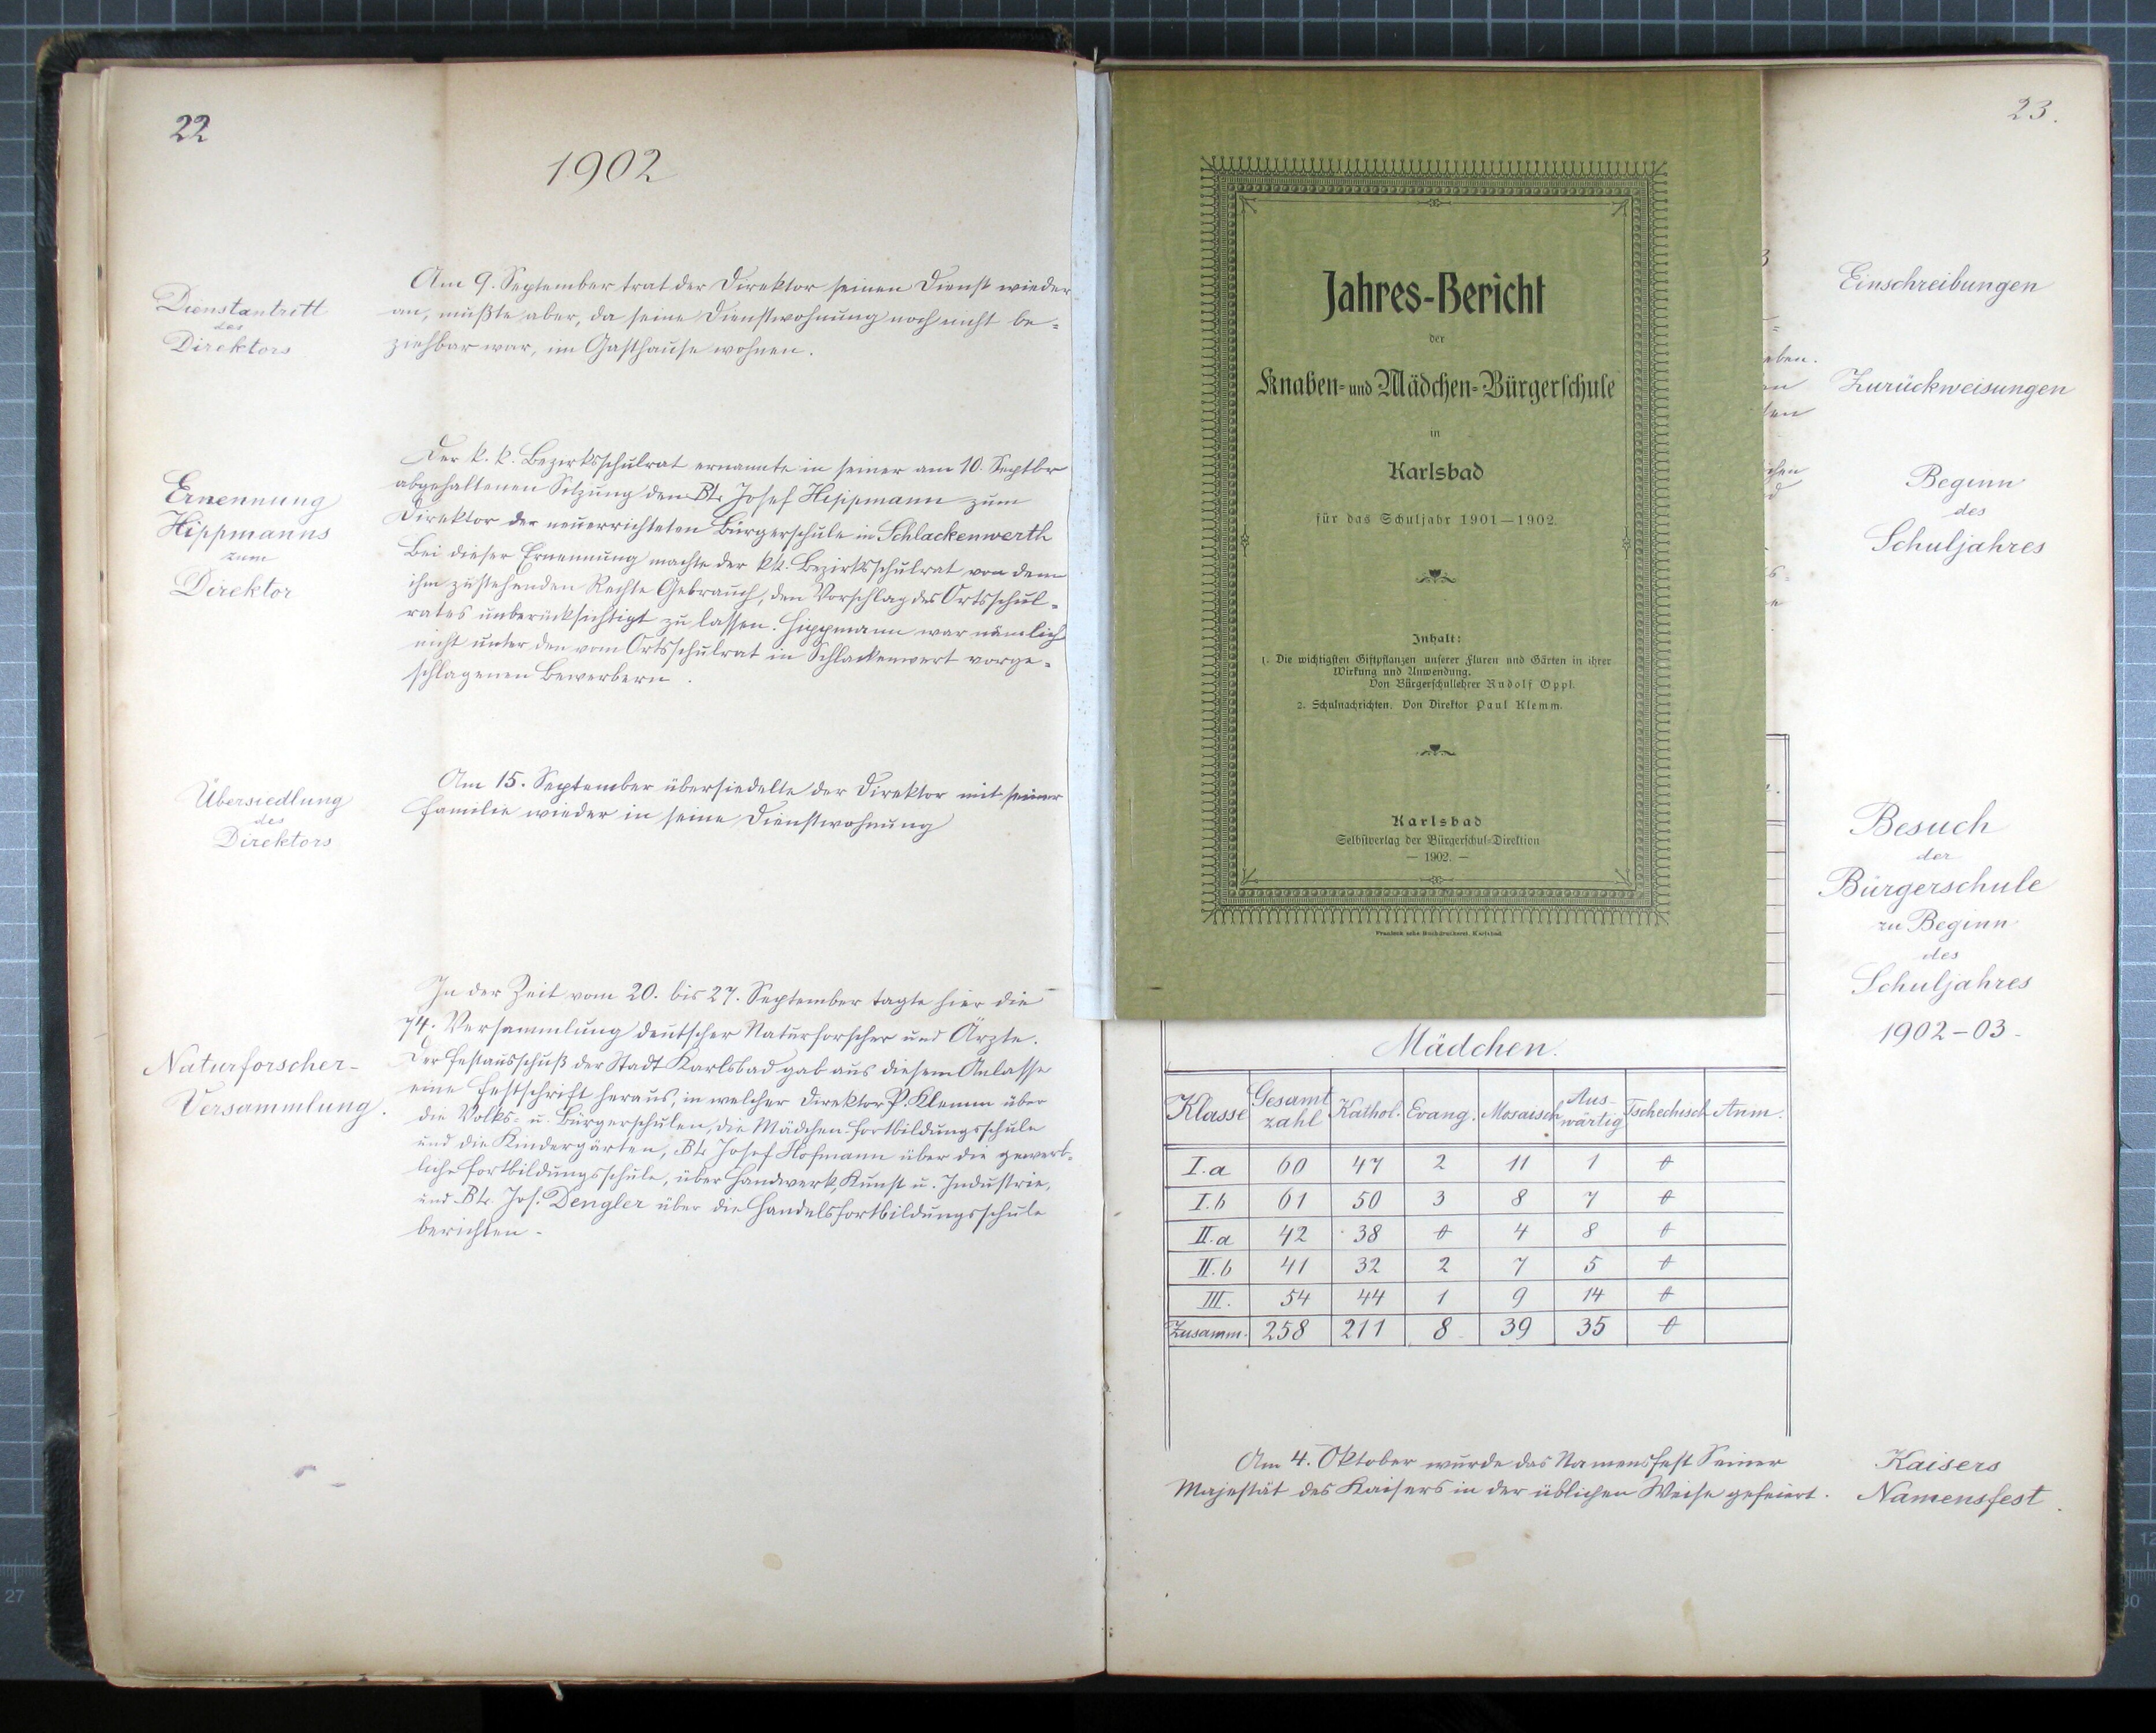 22
1902
Dienstantritt
des
Direktors
Am 9. September trat der Direktor seinen Dienst wieder
an, mußte aber, da seine Dienstwohnung noch nicht be-
ziehbar war, im Gasthause wohnen.
Ernennung
Hippmanns
zum
Direktor
Der k. k. Bezirksschulrat ernannte in seiner am 10. Septbr
abgehaltenen Sitzung den Btr Josef Hippmann zum
Direktor der neuerrichteten Bürgerschule in Schlackenwerth
Bei dieser Ernennung machte der kk. Bezirksschulrat von dem
ihm zustehenden Rechte Gebrauch, den Vorschlag des Ortsschul-
rates unberücksichtigt zu lassen. Hippmann war nämlich
nicht unter den vom Ortsschulrat in Schlackenwert vorge-
schlagenen Bewerbern.
Übersiedlung
des
Direktors
Am 15. September übersiedelte der Direktor mit seiner
Familie wieder in seine Dienstwohnung
Naturforscher-
Versammlung.
In der Zeit vom 20. bis 27. September tagte hier die
74. Versammlung deutscher Naturforscher und Ärzte.
Der Festausschuß der Stadt Karlsbad gab aus diesem Anlasse
eine Festschrift heraus, in welcher Direktor P. Klemm über
die Volks- u. Bürgerschulen, die Mädchen-Fortbildungsschule
und die Kindergärten, Btr Josef Hofmann über die gewerb-
liche Fortbildungsschule, über Handwerk, Kunst u. Industrie,
und Btr. Jos. Dengler über die Handelsfortbildungsschule
berichten.
Jahres-Bericht
der
Knaben- und Mädchen-Bürgerschule
in
Karlsbad
für das Schuljahr 1901—1902.
Inhalt:
1. Die wichtigsten Giftpflanzen unserer Fluren und Gärten in ihrer
Wirkung und Anwendung.
Von Bürgerschullehrer Rudolf Oppl.
2. Schulnachrichten. Von Direktor Paul Klemm.
Karlsbad
Selbstverlag der Bürgerschul-Direktion
— 1902. —
23.
Einschreibungen
Zurückweisungen
Beginn
des
Schuljahres
Besuch
der
Bürgerschule
zu Beginn
des
Schuljahres
1902-03-
Mädchen.
Klasse Gesamtzahl Kathol. Evang. Mosaisch Auswärtig Tschechisch Anm.
I.a 60 47 2 11 1 0
I.b 61 50 3 8 7 0
II.a 42 38 0 4 8 0
II.b 41 32 2 7 5 0
III. 54 44 1 9 14 0
Zusamm. 258 211 8 39 35 0
Am 4. Oktober wurde das Namensfest Seiner
Majestät des Kaisers in der üblichen Weise gefeiert.
Kaisers
Namensfest.